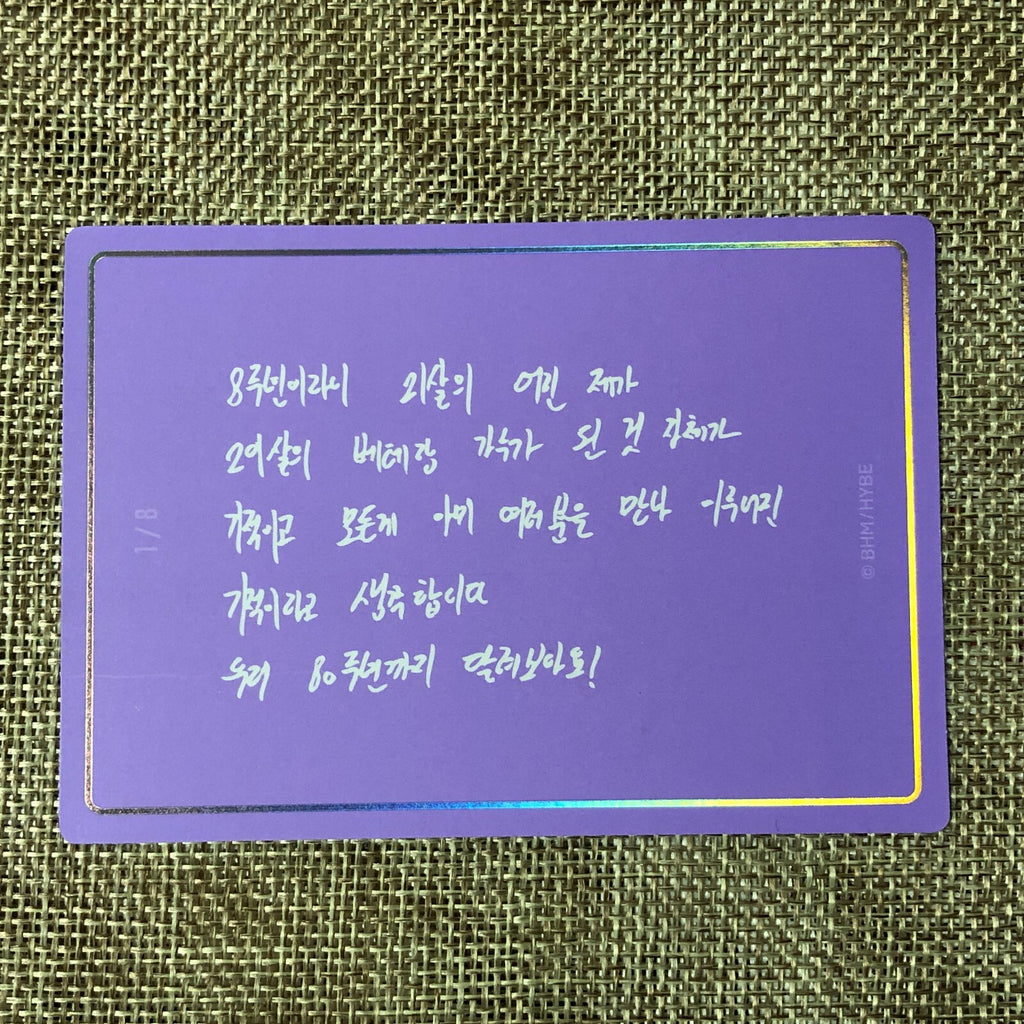 8주년이라니 21살의 어린 제가
29살의 베테랑 가수가 된 것 자체가
기적이고 모든게 아미 여러분을 만나 이루어진
기적이라고 생각합니다
우리 80주년까지 달려보아요!
1/8
© BHM/HYBE